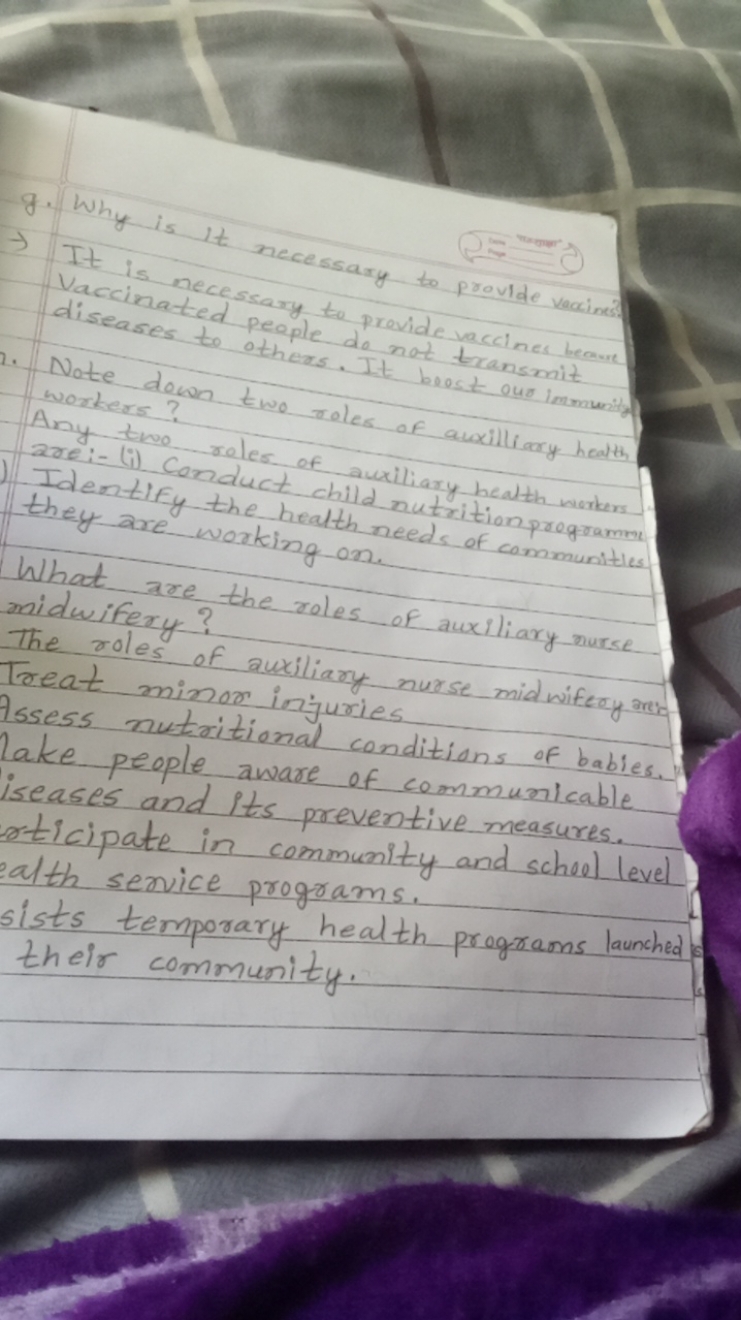 g. Why is it necessary to provide vaccines?
→ It is necessary to provide vaccines because
Vaccinated people do not transmit
diseases to others. It boost our immunity
Note down two roles of auxilliary health
workers?
Any two roles of auxiliary health workers
are:- (i) Conduct child nutrition programme
) Identify the health needs of communities
they are working on.
What are the roles of auxiliary nurse
midwifery?
The roles of auxiliary nurse midwifery are:-
Treat minor injuries
Assess nutritional conditions of babies.
Make people aware of communicable
iseases and its preventive measures.
articipate in community and school level
ealth service programs.
sists temporary health programs launched
their community.